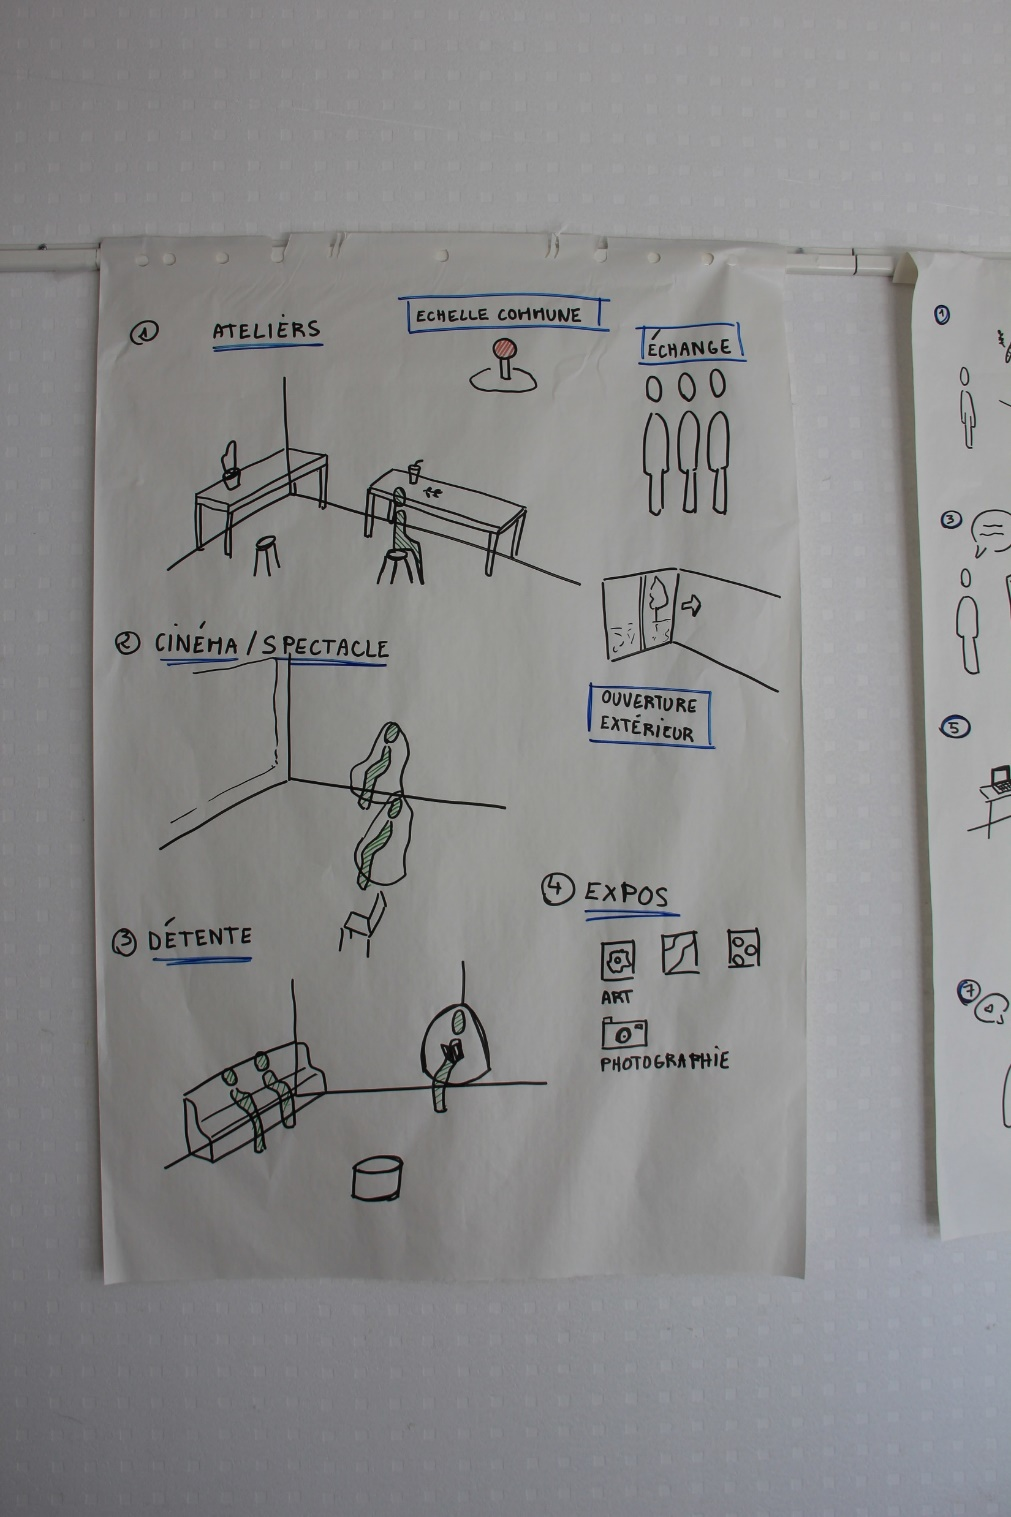 1 ATELIÈRS
ECHELLE COMMUNE
ÉCHANGE
2 CINÉMA / SPECTACLE
OUVERTURE
EXTÉRIEUR
3 DÉTENTE
4 EXPOS
ART
PHOTOGRAPHIE
1
3
5
7